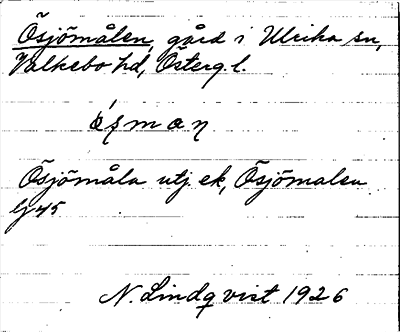 Ösjömålen, gård i Ulrika sn,
Valkebo hd, Österg. l.
Ösjömåla utj. ek, Ösjömalen
Gj 45
N. Lindqvist 1926